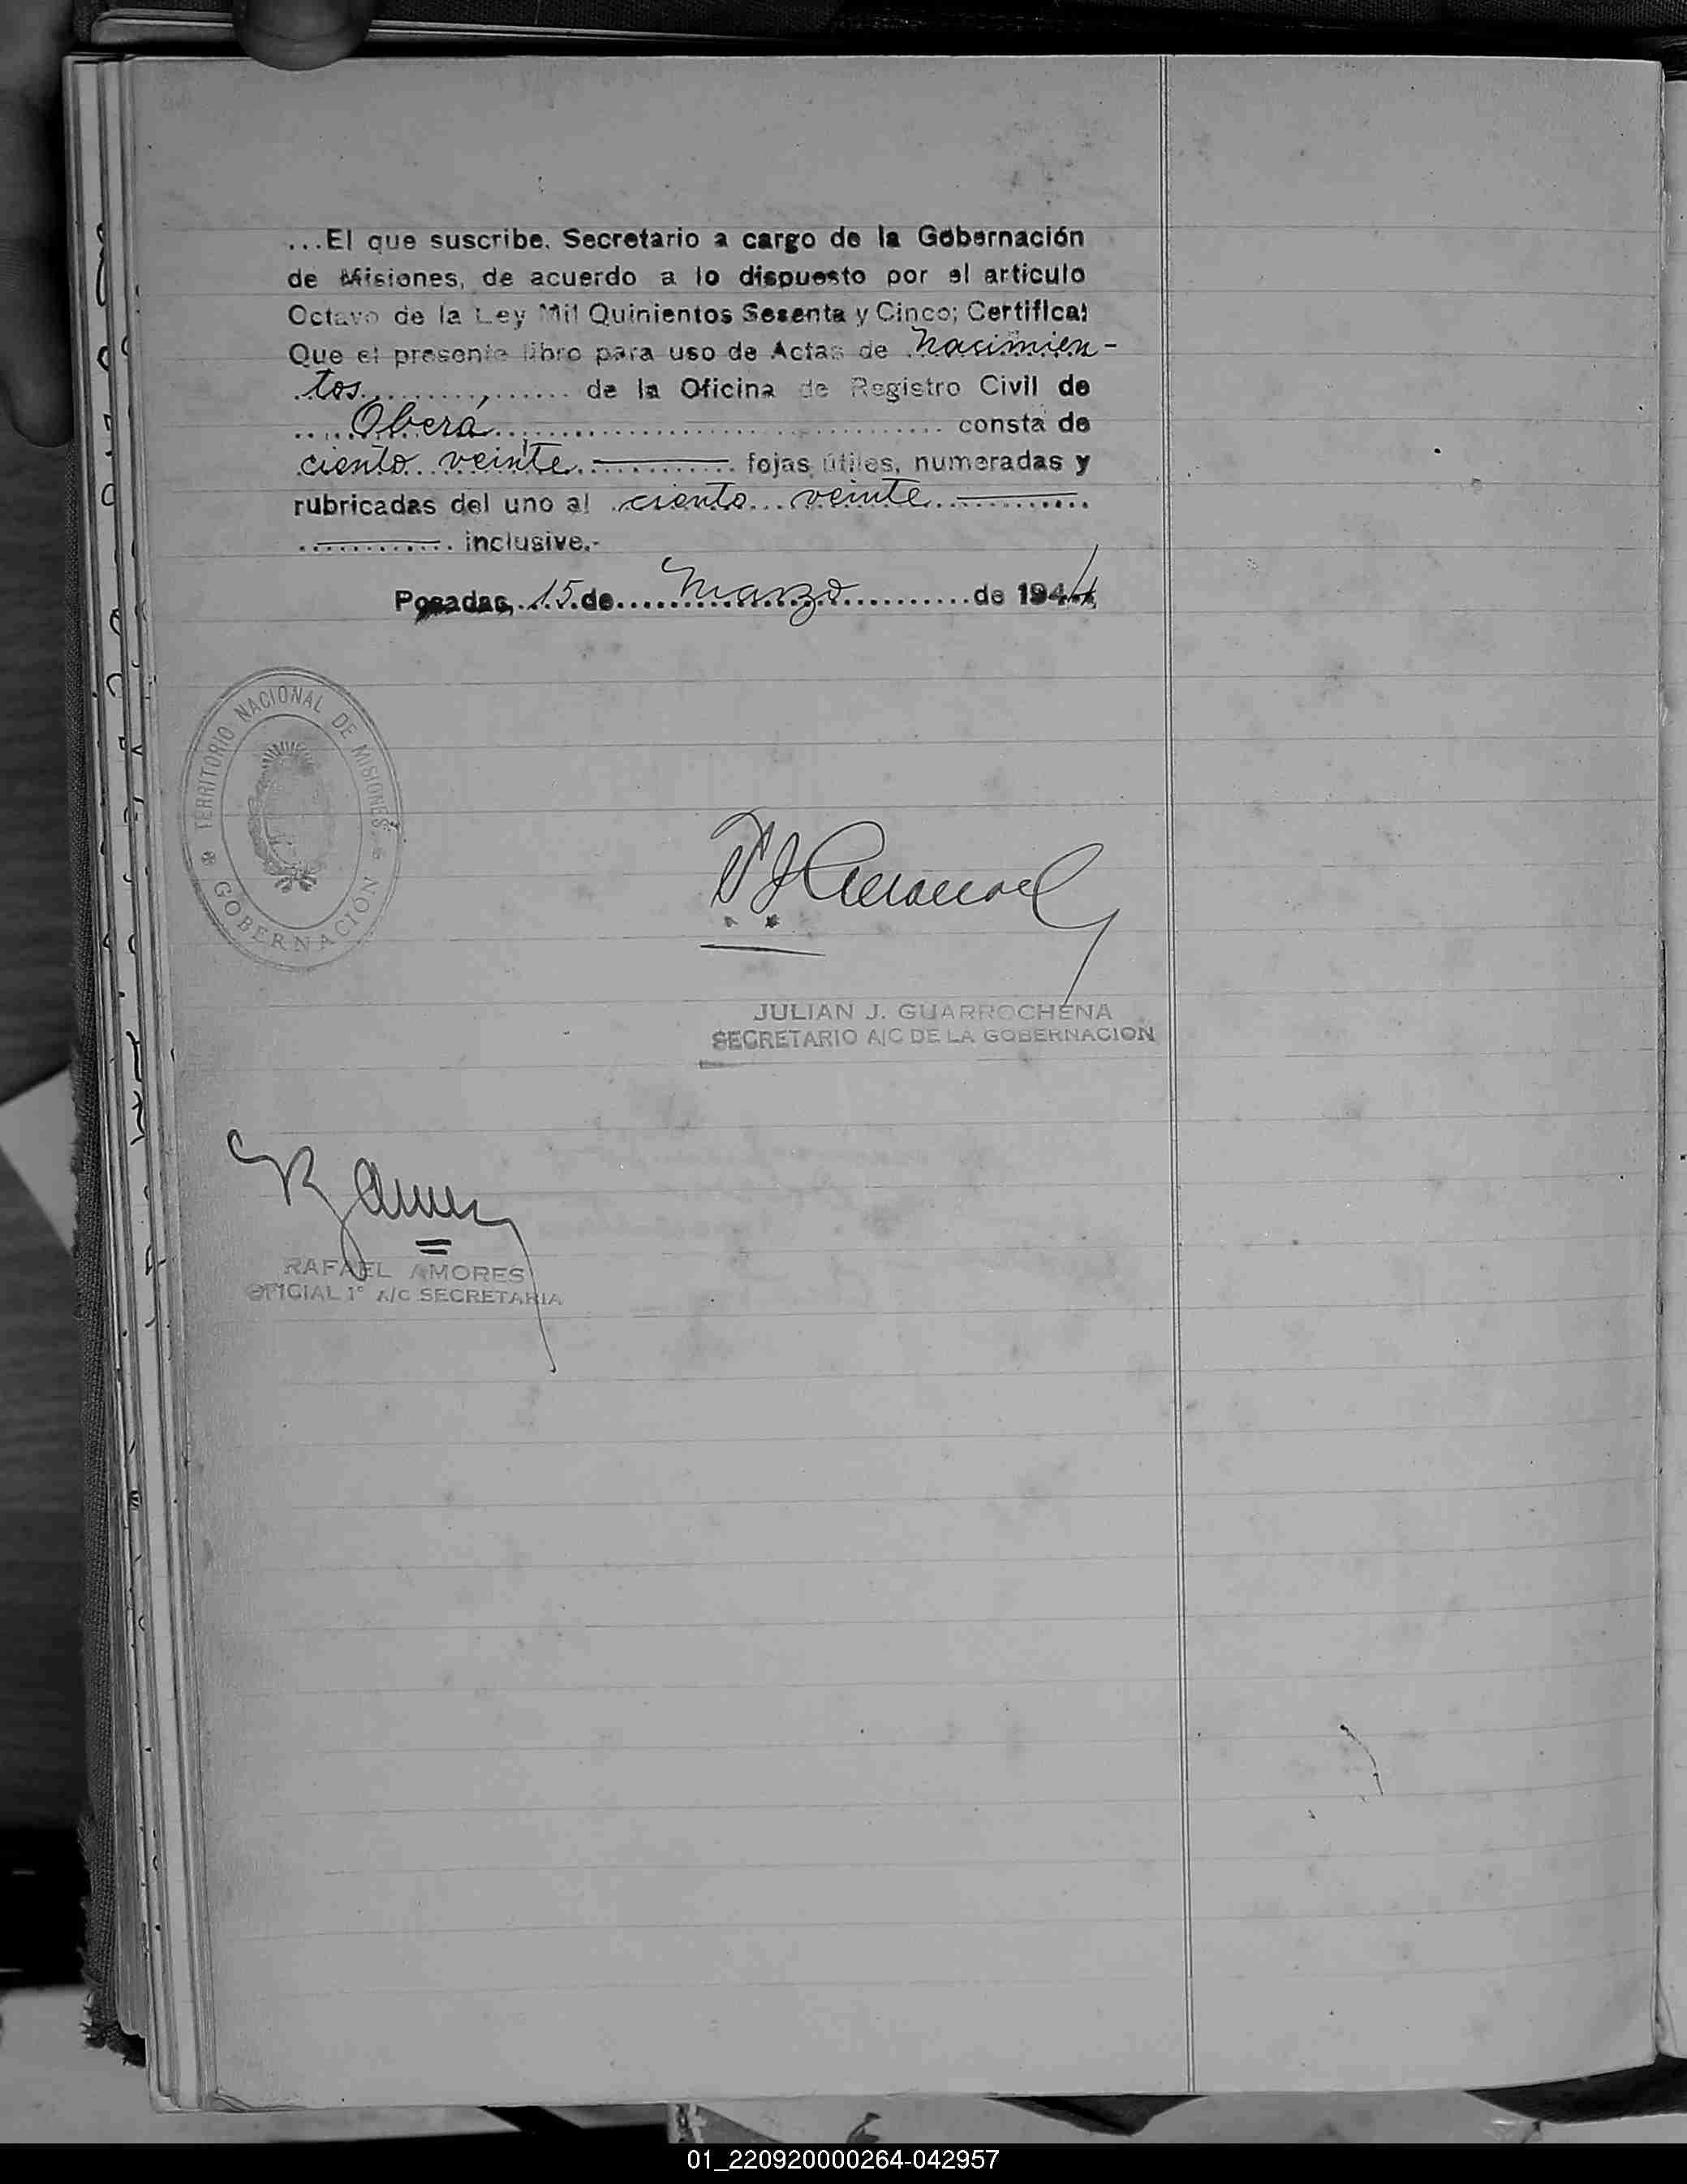 ...El que suscribe. Secretario a cargo de la Gobernación
de Misiones, de acuerdo a lo dispuesto por el articulo
Octavo de la Ley Mil Quinientos Sesenta y Cinco; Certifica:
Que el presente libro para uso de Actas de Nacimien-
tos.................. de la Oficina de Registro Civil de
.....Oberá................................ consta de
ciento veinte............ fojas útiles, numeradas y
rubricadas del uno al ciento veinte............
............ inclusive.-
Posadas, 15 de Marzo de 1944
TERRITORIO NACIONAL DE MISIONES
GOBERNACION
JULIAN J. GUARROCHENA
SECRETARIO A/C DE LA GOBERNACION
RAFAEL AMORES
OFICIAL 1° A/C SECRETARIA
01_220920000264-042957